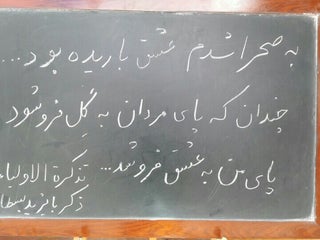 به صحرا شدم عشق باریده بود...
چندان که پای مردان به گِل فروشود
پای من به عشق فروشد...
تذکرة الاولیاء
ذکر بایزید بسطا